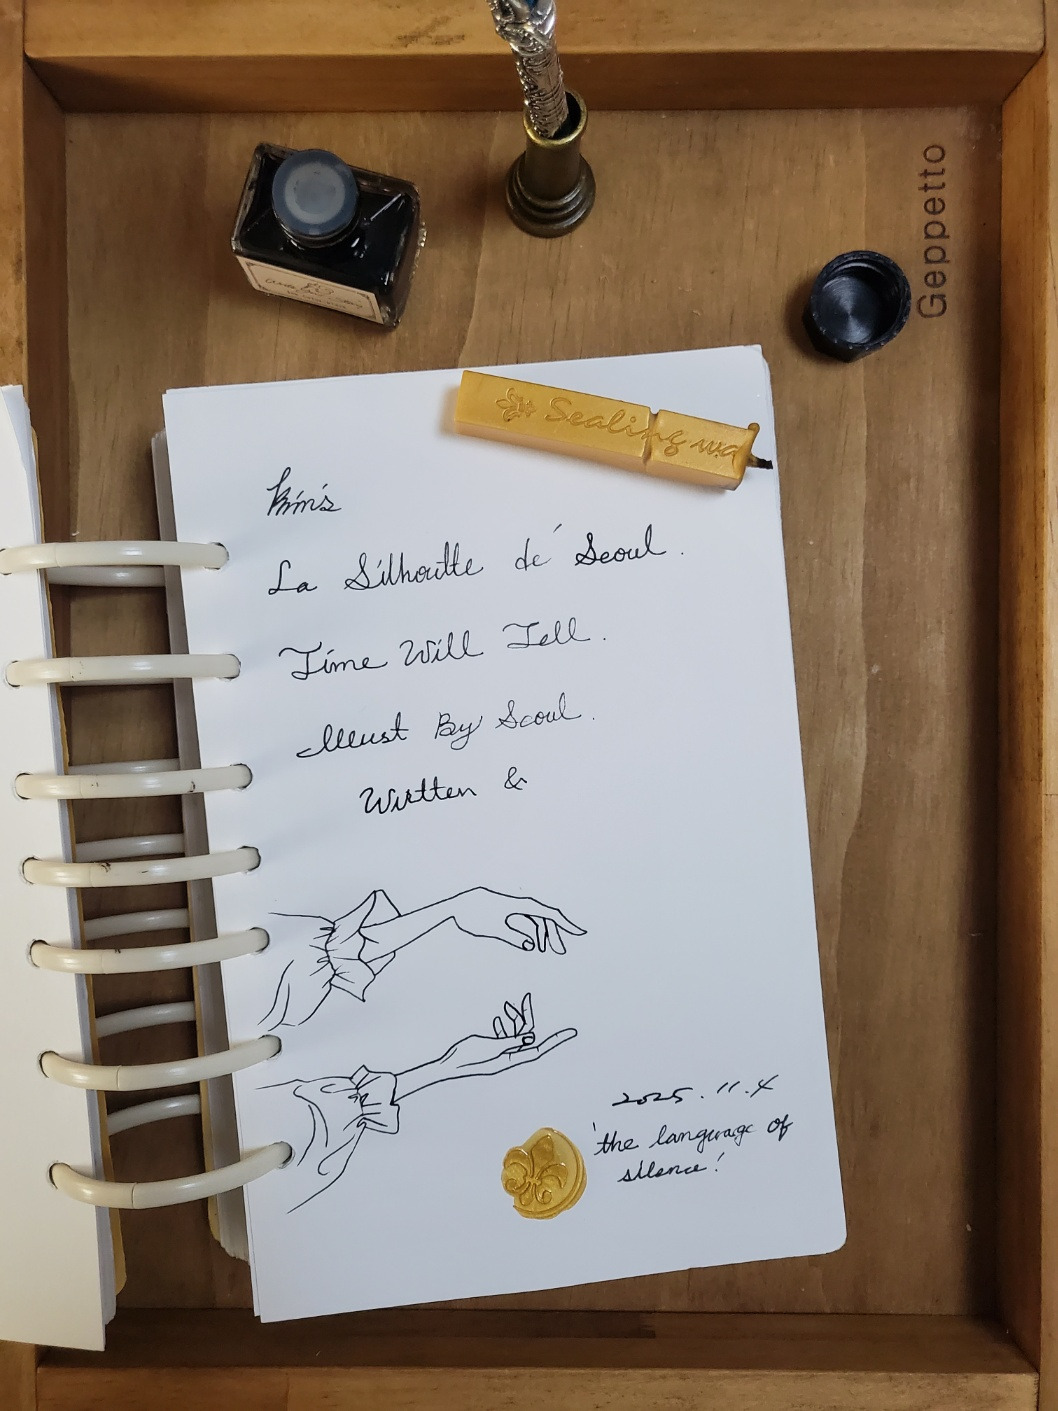 Geppetto
Sealing wa
Kim's
La Silhoutte de´ Seoul.
Time Will Tell.
Must By Seoul.
Written &
2025.11.4
'the language of
silence!